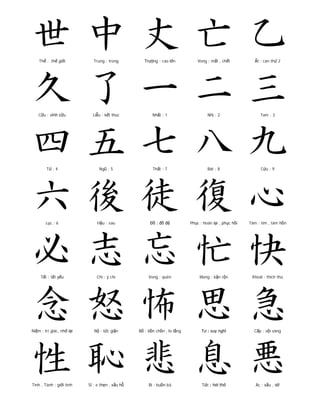 世 中 丈 亡 乙
Thế : thế giới Trung : trong Trượng : cao lớn Vong : mất , chết Ất : can thứ 2
久 了 一 二 三
Cửu : vĩnh cửu Liễu : kết thúc Nhất : 1 Nhị : 2 Tam : 3
四 五 七 八 九
Tứ : 4 Ngũ : 5 Thất : 7 Bát : 8 Cửu : 9
六 後 徒 復 心
Lục : 6 Hậu : sau Đồ : đồ đệ Phục : hoàn lại , phục hồi Tâm : tim , tâm hồn
必 志 忘 忙 快
Tất : tất yếu Chí : ý chí Vong : quên Mang : bận rộn Khoái : thích thú
念 怒 怖 思 急
Niệm : tri giác, nhớ lại Nộ : tức giận Bố : bồn chồn, lo lắng Tư : suy nghĩ Cấp : vội vàng
性 恥 悲 息 悪
Tính , Tánh : giới tính Sỉ : e thẹn , xấu hổ Bi : buồn bã Tức : hơi thở Ác : xấu , dở